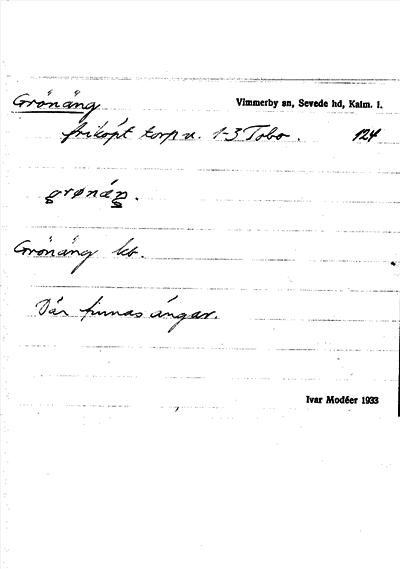 Grönäng Vimmerby sn, Sevede hd, Kalm. l.
friköpt torp u. 1-3 Tobo. 124
Grönäng kb.
Där finnas ängar.
Ivar Modéer 1933